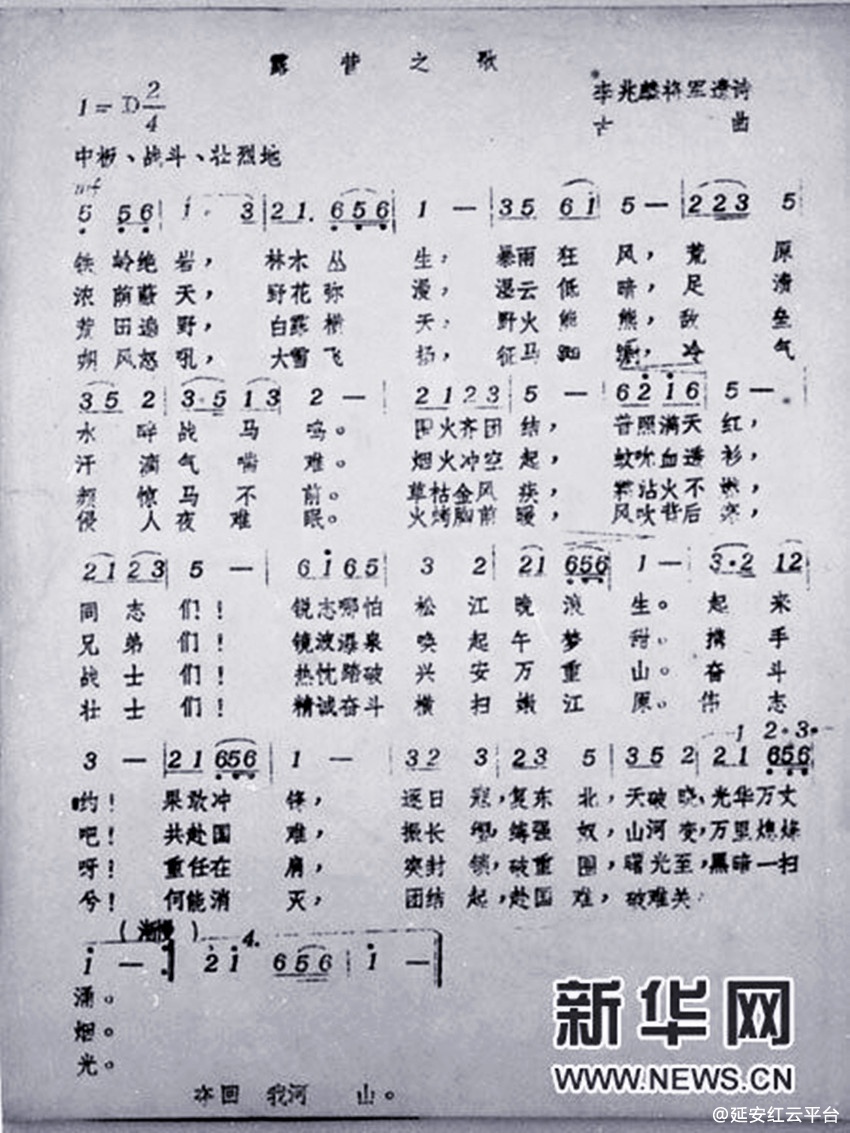 露营之歌
1=D 2/4
李兆麟将军遗诗
古 曲
中板、战斗、壮烈地
mf
5 56 | 1. 3 | 21. 656 | 1 — | 35 61 | 5 — | 223 5
铁岭绝岩，林木丛生，暴雨狂风，荒原
浓荫蔽天，野花弥漫，湿云低暗，足渍
荒田遍野，白露横天，野火熊熊，敌垒
朔风怒吼，大雪飞扬，征马踟蹰，冷气
35 2 | 3·5 13 | 2 — | 2123 | 5 — | 6216 | 5 — |
水畔战马鸣。围火齐团结，普照满天红，
汗滴气喘难。烟火冲空起，蚊吮血透衫，
频惊马不前。草枯金风疾，霜沾火不燃，
侵人夜难眠。火烤胸前暖，风吹背后寒，
21 23 | 5 — | 61 65 | 3 2 | 21 656 | 1 — | 3·2 12
同志们！锐志哪怕松江晚浪生。起来
兄弟们！镜泊瀑泉唤起午梦甜。携手
战士们！热忱踏破兴安万重山。奋斗
壮士们！精诚奋斗横扫嫩江原。伟志
1 2·3·
3 — | 21 656 | 1 — | 32 3 | 23 5 | 35 2 | 21 656
哟！果敢冲锋，逐日寇，复东北，天破晓，光华万丈
吧！共赴国难，振长缨，缚强奴，山河变，万里熄烽
呀！重任在肩，突封锁，破重围，曙光至，黑暗一扫
兮！何能消灭，团结起，赴国难，破难关
（渐慢）
4.
1 — :| 21 656 | 1 — |
涌。
烟。
光。
夺回 我河 山。
新华网
WWW.NEWS.CN
@延安红云平台